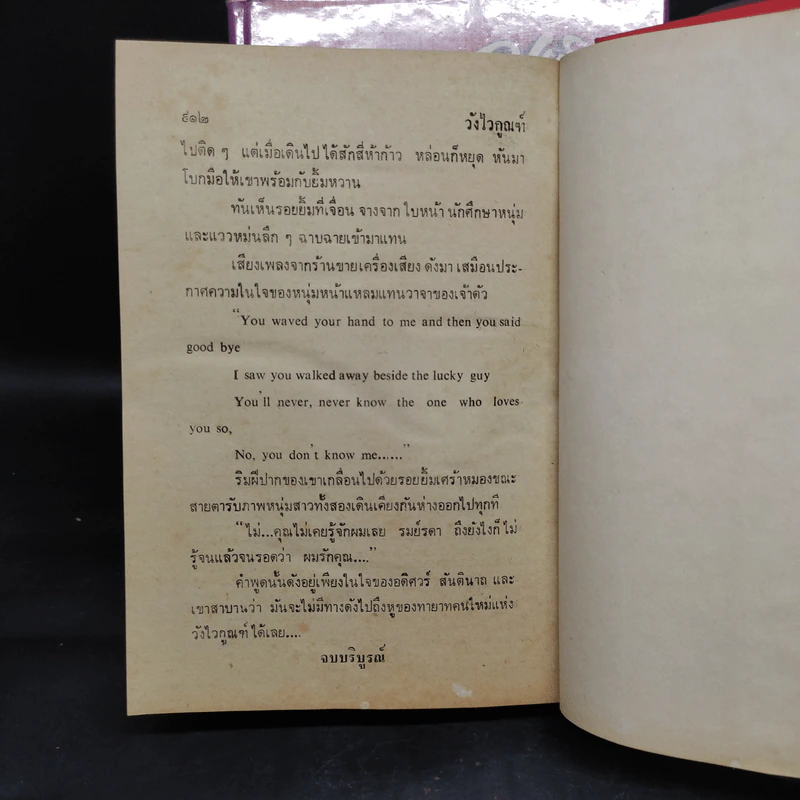 ๕๑๒ วังไวกูณฑ์
ไปติด ๆ แต่เมื่อเดินไปได้สักสี่ห้าก้าว หล่อนก็หยุด หันมา
โบกมือให้เขาพร้อมกับยิ้มหวาน
ทันเห็นรอยยิ้มที่เจื่อน จางจาก ใบหน้า นักศึกษาหนุ่ม
และแววหม่นลึก ๆ ฉาบฉายเข้ามาแทน
เสียงเพลงจากร้านขายเครื่องเสียง ดังมา เสมือนประ-
กาศความในใจของหนุ่มหน้าแหลมแทนวาจาของเจ้าตัว
“You waved your hand to me and then you said
good bye
I saw you walked away beside the lucky guy
You'll never, never know the one who loves
you so,
No, you don't know me......”
ริมฝีปากของเขาเกลื่อนไปด้วยรอยยิ้มเศร้าหมองขณะ
สายตารับภาพหนุ่มสาวทั้งสองเดินเคียงกันห่างออกไปทุกที
“ไม่...คุณไม่เคยรู้จักผมเลย รมย์รตา ถึงยังไงก็ไม่
รู้จนแล้วจนรอดว่า ผมรักคุณ....”
คำพูดนั้นดังอยู่เพียงในใจของอติศวร์ สันตินาถ และ
เขาสาบานว่า มันจะไม่มีทางดังไปถึงหูของทายาทคนใหม่แห่ง
วังไวกูณฑ์ได้เลย....
จบบริบูรณ์